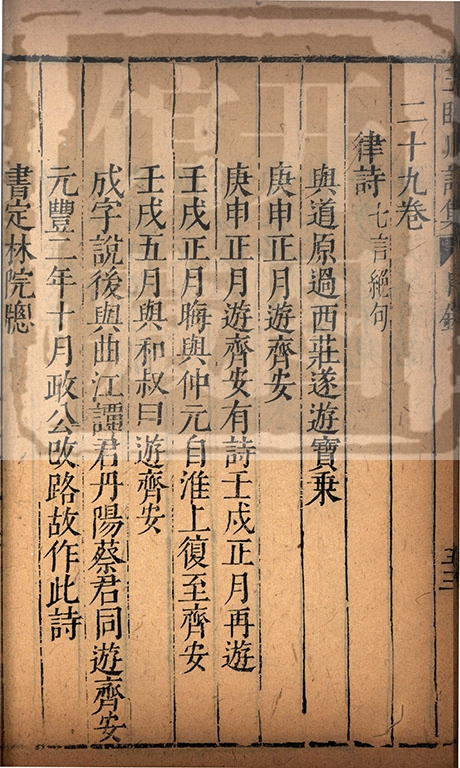 二十九卷
律詩 七言絕句
與道原過西莊遂遊寶乗
庚申正月遊齊安
庚申正月遊齊安有詩壬戍正月再遊
壬戍正月晦與仲元自淮上復至齊安
壬戍五月與和叔曰遊齊安
成字說後與曲江譚君丹陽蔡君同遊齊安
元豐二年十月政公改路故作此詩
書定林院牕